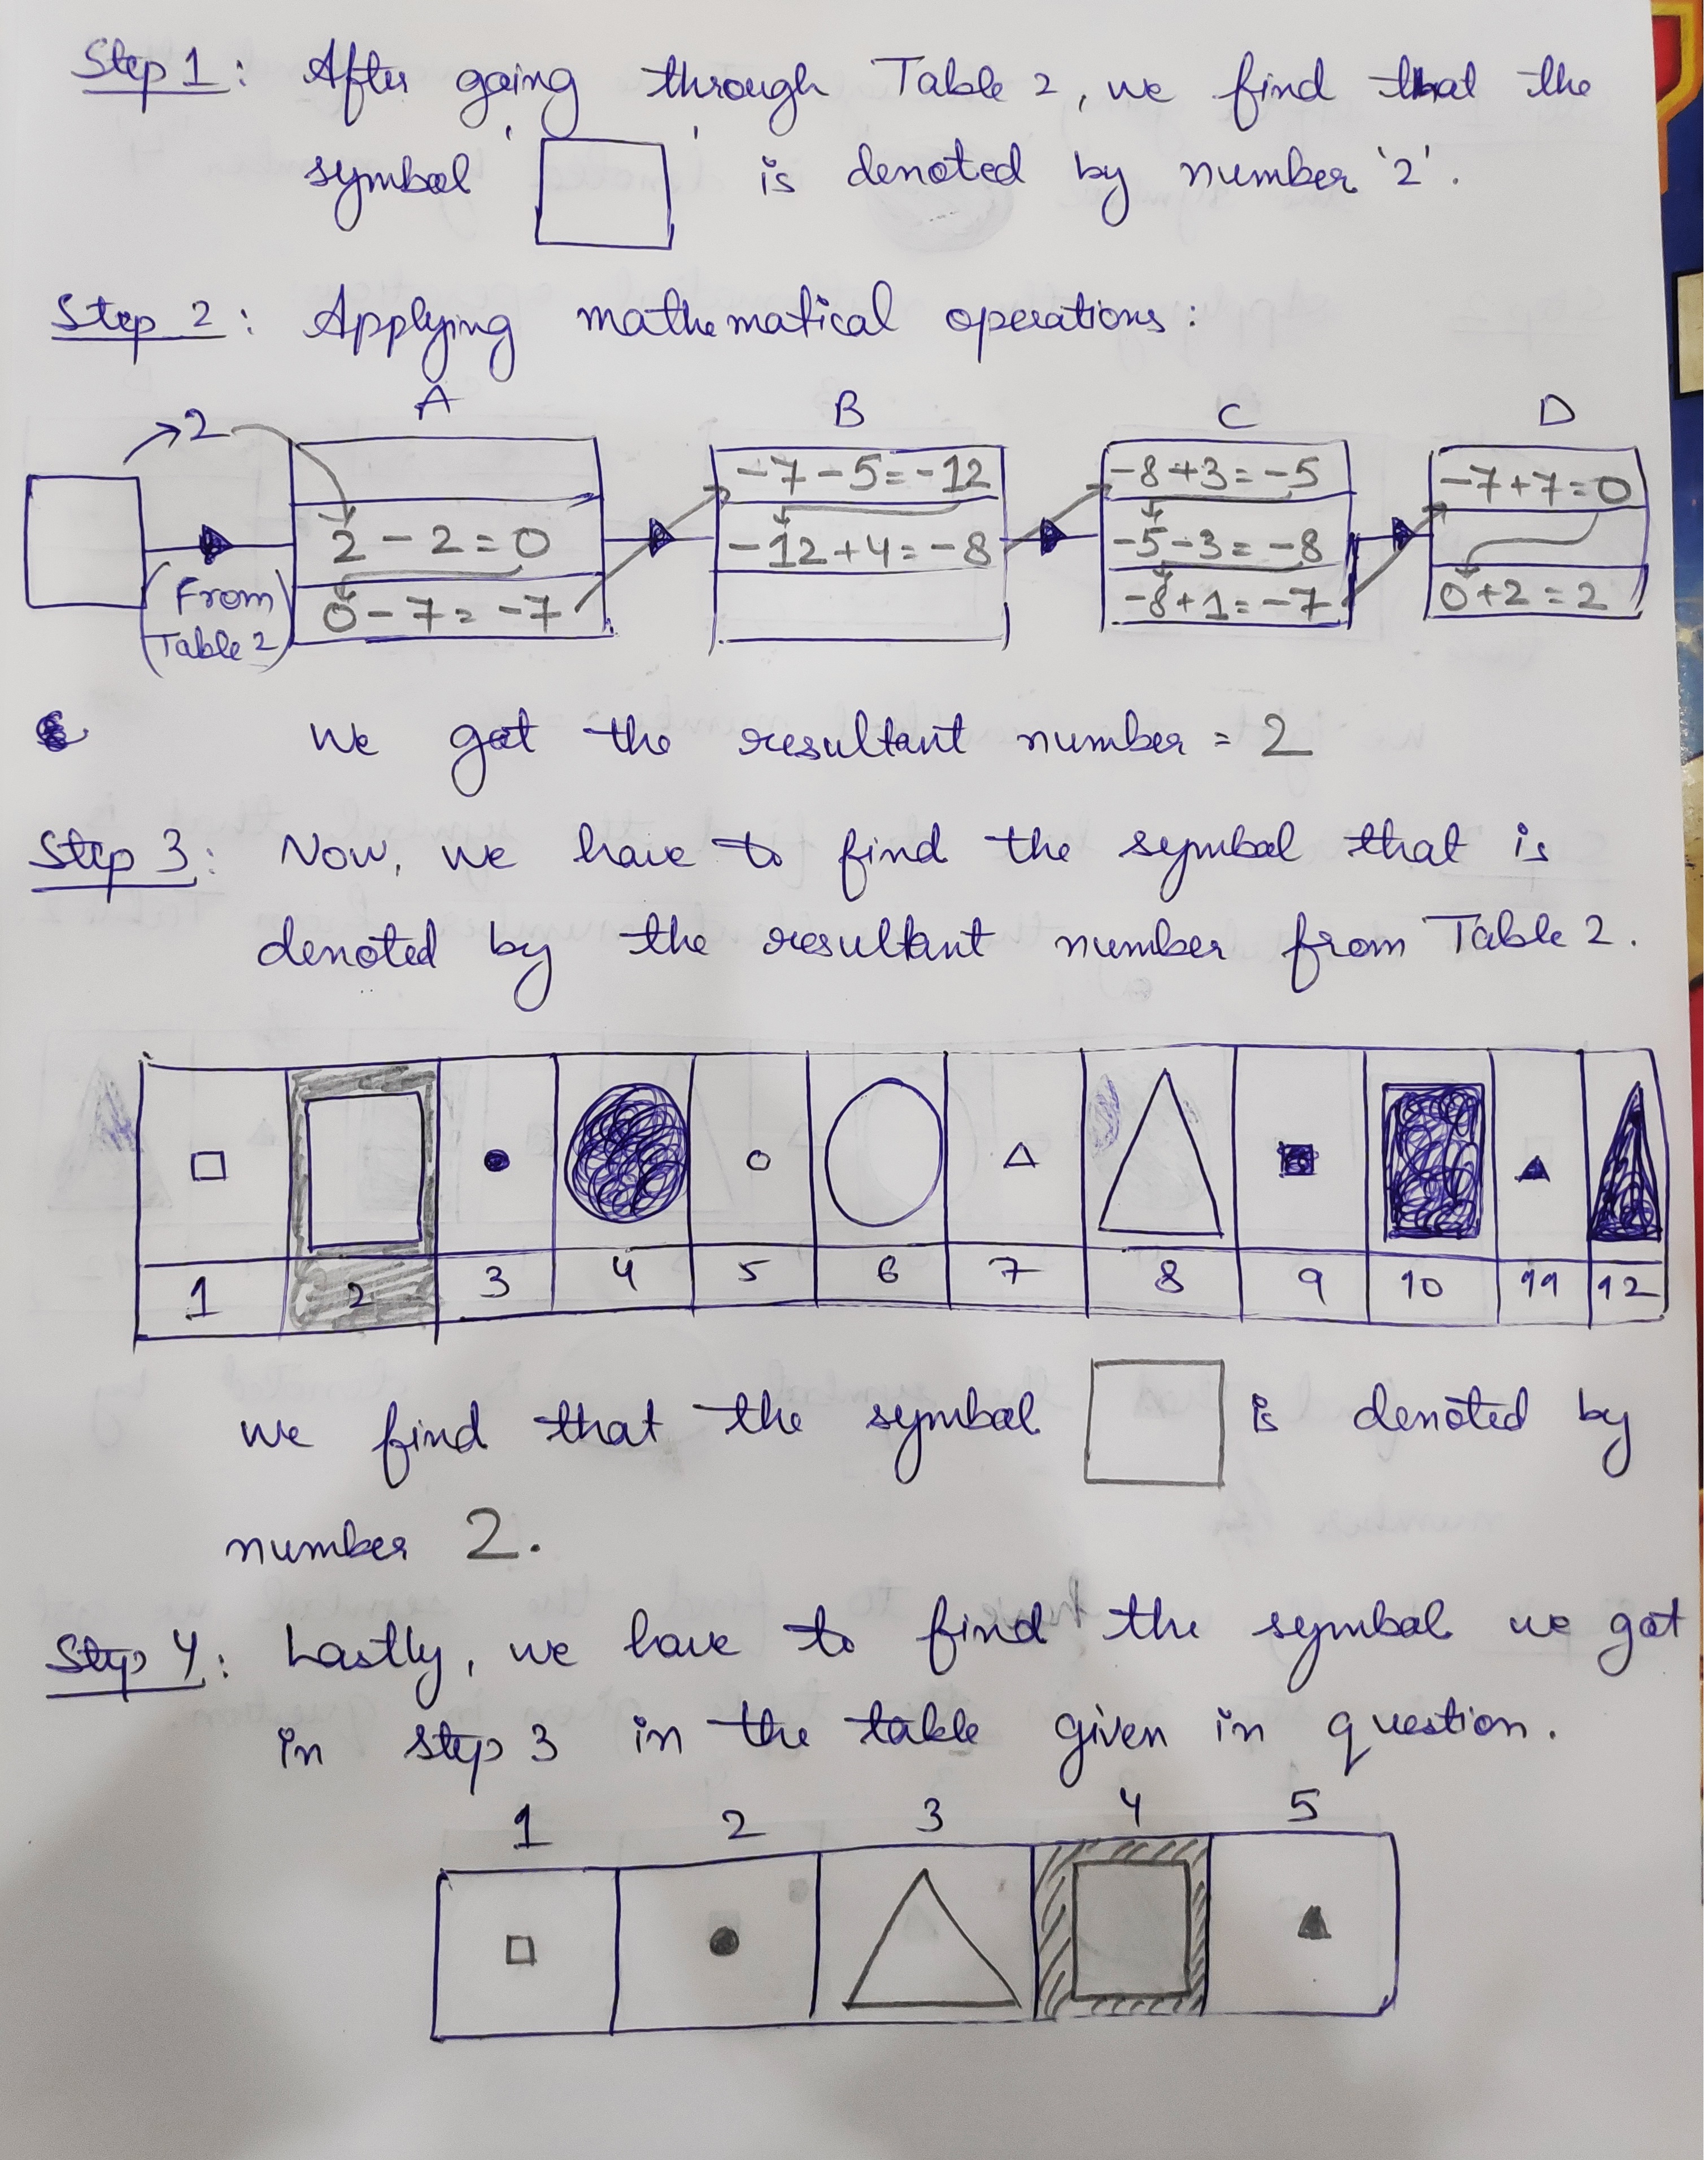 Step 1: After going through Table 2, we find that the
symbol ' ' is denoted by number '2'.
Step 2: Applying mathematical operations:
A B C D
2
-7-5=-12 -8+3=-5 -7+7=0
2-2=0 -12+4=-8 -5-3=-8
(From Table 2) 0-7=-7 -8+1=-7 0+2=2
We got the resultant number = 2
Step 3: Now, we have to find the symbol that is
denoted by the resultant number from Table 2.
1 2 3 4 5 6 7 8 9 10 11 12
We find that the symbol is denoted by
number 2.
Step 4: Lastly, we have to find the symbol we got
in step 3 in the table given in question.
1 2 3 4 5